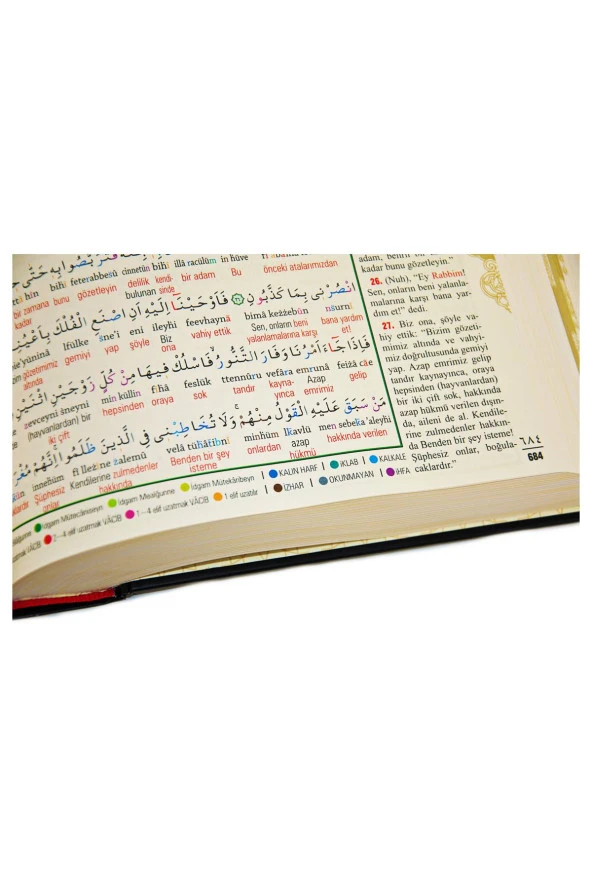 bihî feterabbesû cinnetün bihî illâ racülüm in hüve
bir zamana kadar bunu gözetleyin delilik kendisinde bulunan bir adam Bu önceki atalarımızdan
انْصُرْنِى بِمَا كَذَّبُونِ ﴿٢٦﴾ فَاَوْحَيْنَٓا اِلَيْهِ اَنِ اصْنَعِ الْفُلْكَ
lfülke sne'i eni ileyhi feevhaynâ bimâ keżżebûn nsurnî
gözetimimiz altında gemiyi yap şöyle ona vahiy ettik Biz Sen, onların beni yalanlamalarına karşı bana yardım et!
فَاِذَا جَٓاءَ اَمْرُنَا وَفَارَ التَّنُّورُ فَاسْلُكْ فِيهَا مِنْ كُلٍّ زَوْجَيْنِ اثْنَيْنِ
zevceyni śneyni min küllin fîhâ feslük ttennûru vefâra emrunâ feiżâ câe
(hayvanların) bir iki çift hepsinden oraya sok tandır kaynayınca Azap emrimiz gelip
مَنْ سَبَقَ عَلَيْهِ الْقَوْلُ مِنْهُمْ وَلَا تُخَاطِبْنِى فِى الَّذِينَ ظَلَمُوا اِنَّهُمْ
innehüm fî lleżîne zalemû velâ tüḣâṭibnî minhüm lkavlü men sebeka 'aleyhi
Şüphesiz onlar Kendilerine zulmedenler hakkında Benden bir şey isteme onlardan azap hükmü hakkında verilen
İdgam Mütecaniseyn İdgam Mealğunne İdgam Mütekâribeyn KALIN HARF İKLAB KALKALE
2-4 elif uzatmak VÂCİB 1-4 elif uzatmak VÂCİB 1 elif uzatılır İZHAR OKUNMAYAN İHFA
adam, belirli bir zamana
kadar bunu gözetleyin."
26. (Nuh), "Ey Rabbim!
Sen, onların beni yalanla-
malarına karşı bana yar-
dım et!" dedi.
27. Biz ona, şöyle va-
hiy ettik: "Bizim gözeti-
mimiz altında ve vahyi-
miz doğrultusunda gemiyi
yap. Azap emrimiz gelip
tandır kaynayınca, oraya
hepsinden (hayvanlardan)
bir iki çift sok, hakkında
azap hükmü verilen dışın-
da, aileni de al. Kendile-
rine zulmedenler hakkın-
da Benden bir şey isteme!
Şüphesiz onlar, boğula-
caklardır."
٦٨٤
684